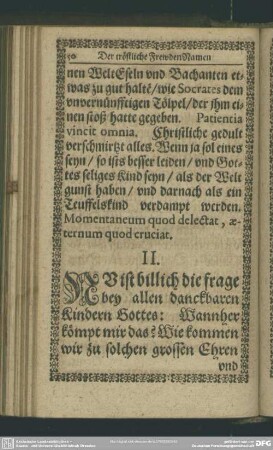 Der tröstliche FrewdenNamen
nen WeltEseln vnd Bachanten et-
was zu gut halte/ wie Socrates dem
vnvernünfftigen Tölpel/ der jhm ei-
nen stoß hatte gegeben. Patientia
vincit omnia. Christliche gedult
verschmirtzt alles. Wenn ja sol eines
seyn/ so ists besser leiden/ vnd Got-
tes seliges Kind seyn/ als der Welt
gunst haben/ vnd darnach als ein
Teuffelskind verdampt werden.
Momentaneum quod delectat, æ-
ternum quod cruciat.
II.
NV ist billich die frage
bey allen danckbaren
Kindern Gottes: Wannher
kömpt mir das? Wie kommen
wir zu solchen grossen Ehren
vnd